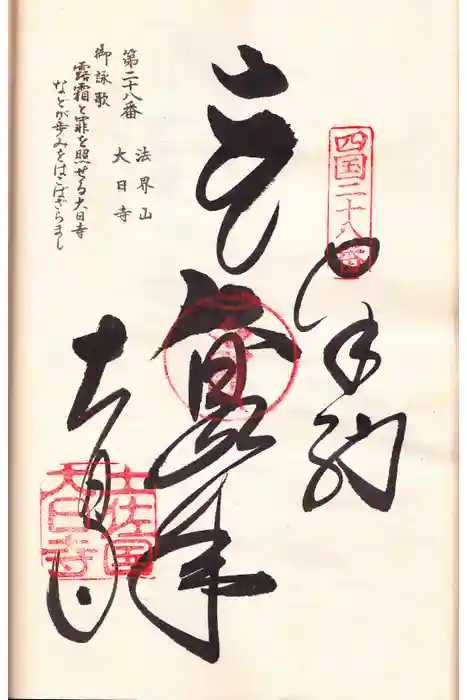 四国二十八番
奉納
大日寺
土佐国
大日寺
第二十八番
法界山
大日寺
御詠歌
露霜と罪を照せる大日寺
などが歩みをはこばざらまし